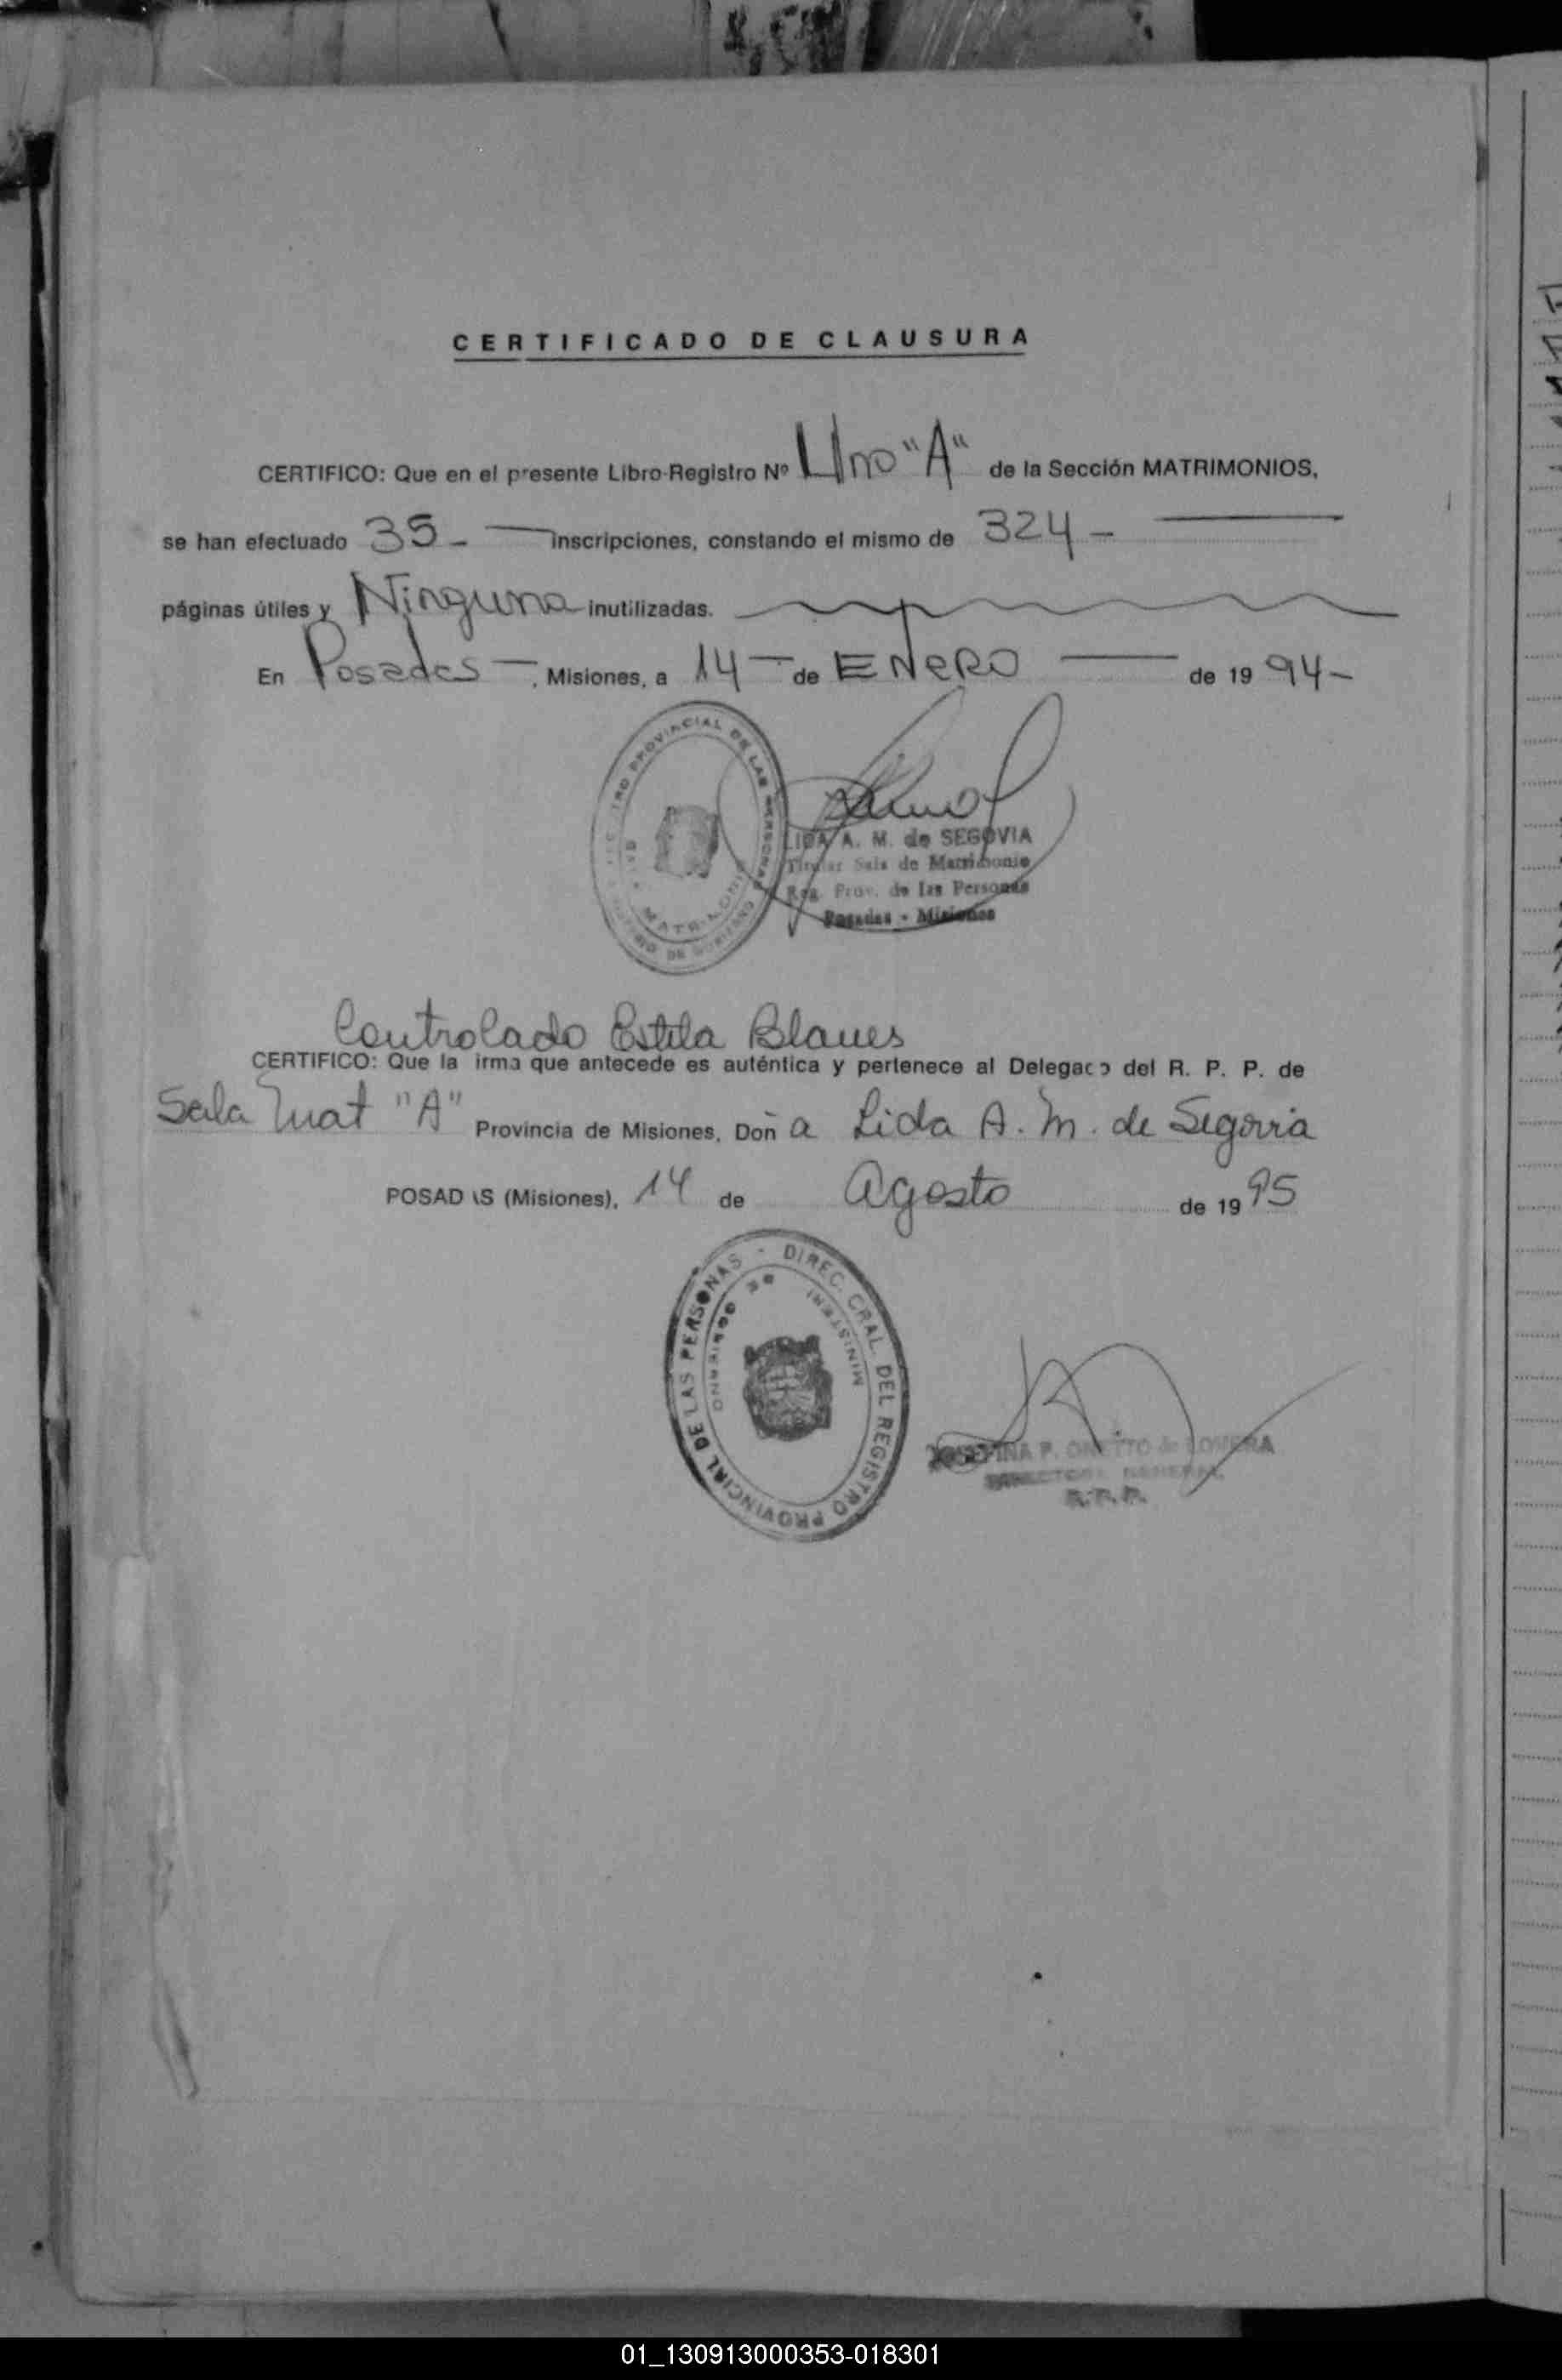 CERTIFICADO DE CLAUSURA
CERTIFICO: Que en el presente Libro-Registro Nº Uno "A" de la Sección MATRIMONIOS,
se han efectuado 35 - inscripciones, constando el mismo de 324 -
páginas útiles y Ninguna inutilizadas.
En Posadas -, Misiones, a 14 - de ENERO de 19 94 -
LIDA A. M. de SEGOVIA
Titular Sala de Matrimonio
Reg. Prov. de las Personas
Posadas - Misiones
PROVINCIAL DE LAS PERSONAS
Controlado Estela Blanes
CERTIFICO: Que la irma que antecede es auténtica y pertenece al Delegado del R. P. P. de
Sala Mat "A" Provincia de Misiones, Doñ a Lida A. M. de Segovia
POSAD AS (Misiones), 14 de Agosto de 19 95
DIREC. GRAL. DEL REGISTRO PROVINCIAL DE LAS PERSONAS -
MINISTERI DE GOBIERNO
JOSEFINA P. ONETTO de LOVERA
DIRECTORA GENERAL
R. P. P.
01_130913000353-018301